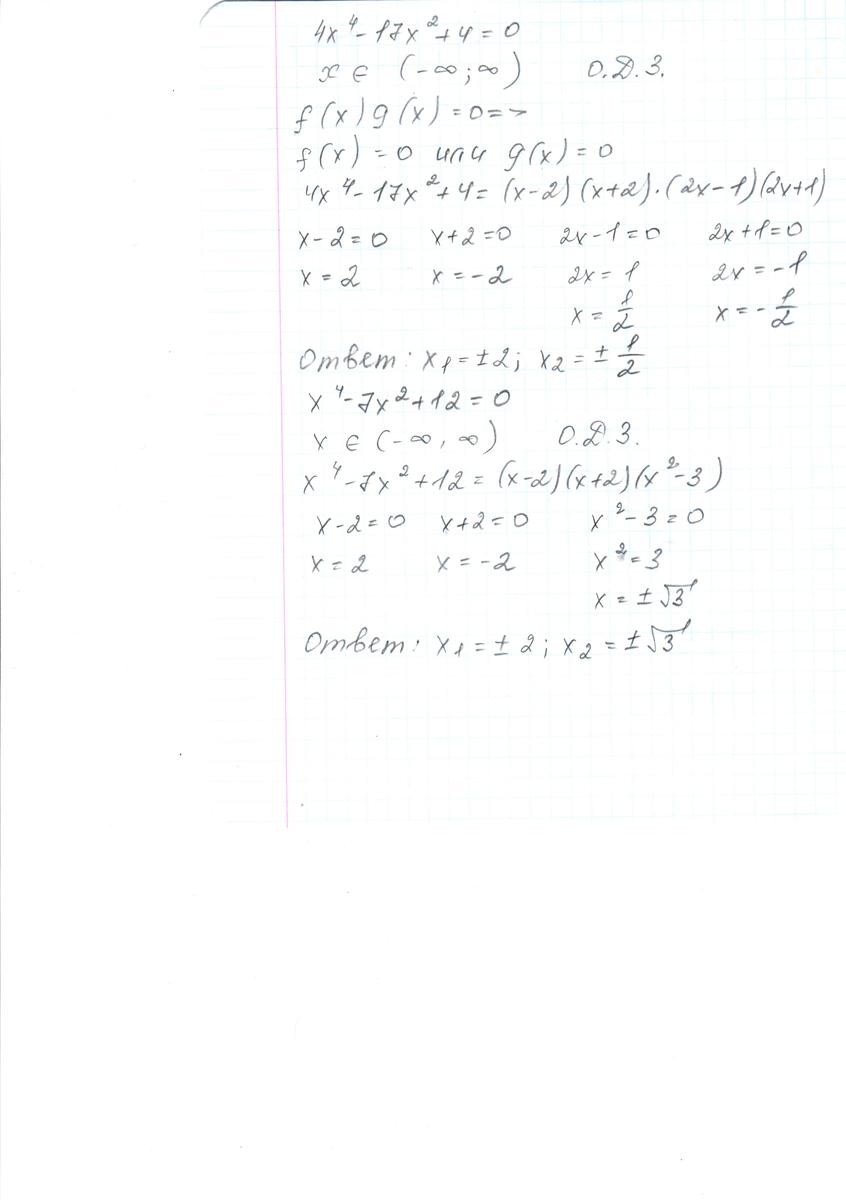 4x⁴ - 17x² + 4 = 0
x ∈ (-∞; ∞) О.Д.З.
f(x)g(x) = 0 =>
f(x) = 0 или g(x) = 0
4x⁴ - 17x² + 4 = (x-2)(x+2)·(2x-1)(2x+1)
x-2=0 x+2=0 2x-1=0 2x+1=0
x=2 x=-2 2x=1 2x=-1
x=1/2 x=-1/2
Ответ: x₁=±2; x₂=±1/2
x⁴-7x²+12=0
x ∈ (-∞, ∞) О.Д.З.
x⁴-7x²+12=(x-2)(x+2)(x²-3)
x-2=0 x+2=0 x²-3=0
x=2 x=-2 x²=3
x=±√3
Ответ: x₁=±2; x₂=±√3